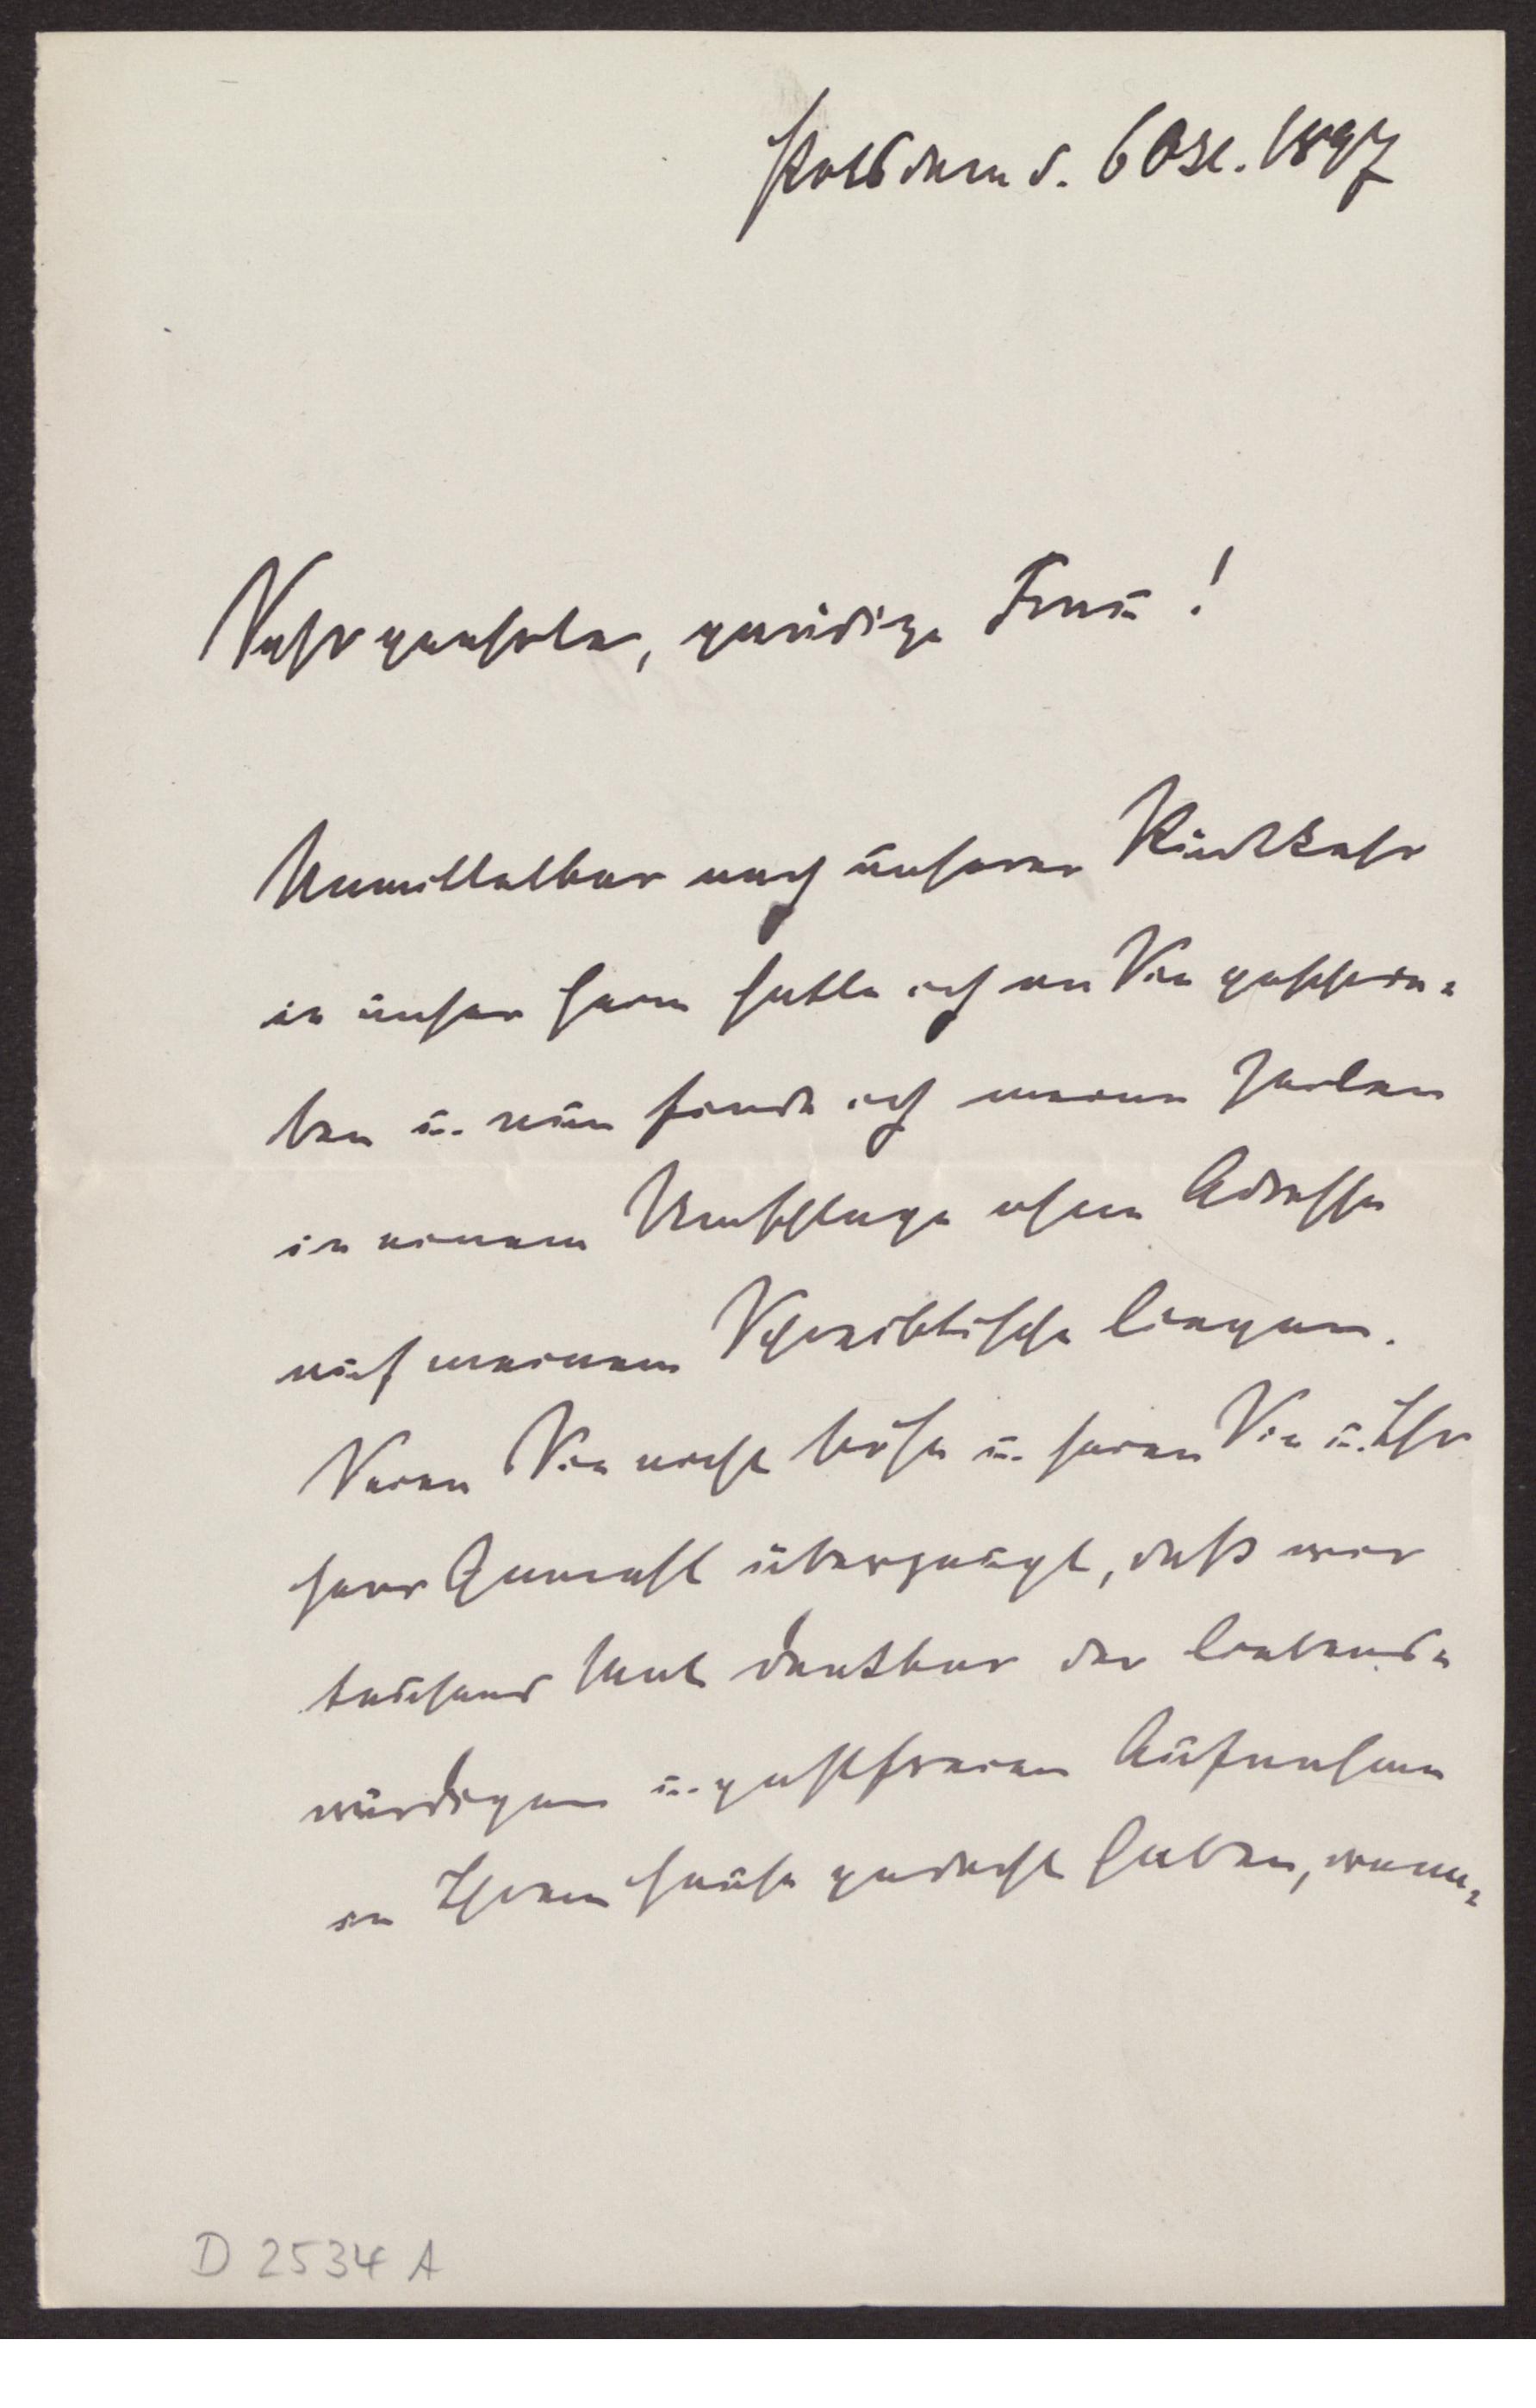 Potsdam d. 6 Okt. 1897
Sehr geehrte, gnädige Frau!
Unmittelbar nach unserer Rückkehr
in unser Heim hatte ich an Sie geschrie-
ben u. nun finde ich meine Zeilen
in einem Umschlage ohne Adresse
auf meinem Schreibtische liegen.
Seien Sie nicht böse u. seien Sie u. Ihr
Herr Gemahl überzeugt, daß wir
tausend Mal dankbar der liebens-
würdigen u. gastfreien Aufnahme
in Ihrem Hause gedacht haben, wenn-
D 2534 A